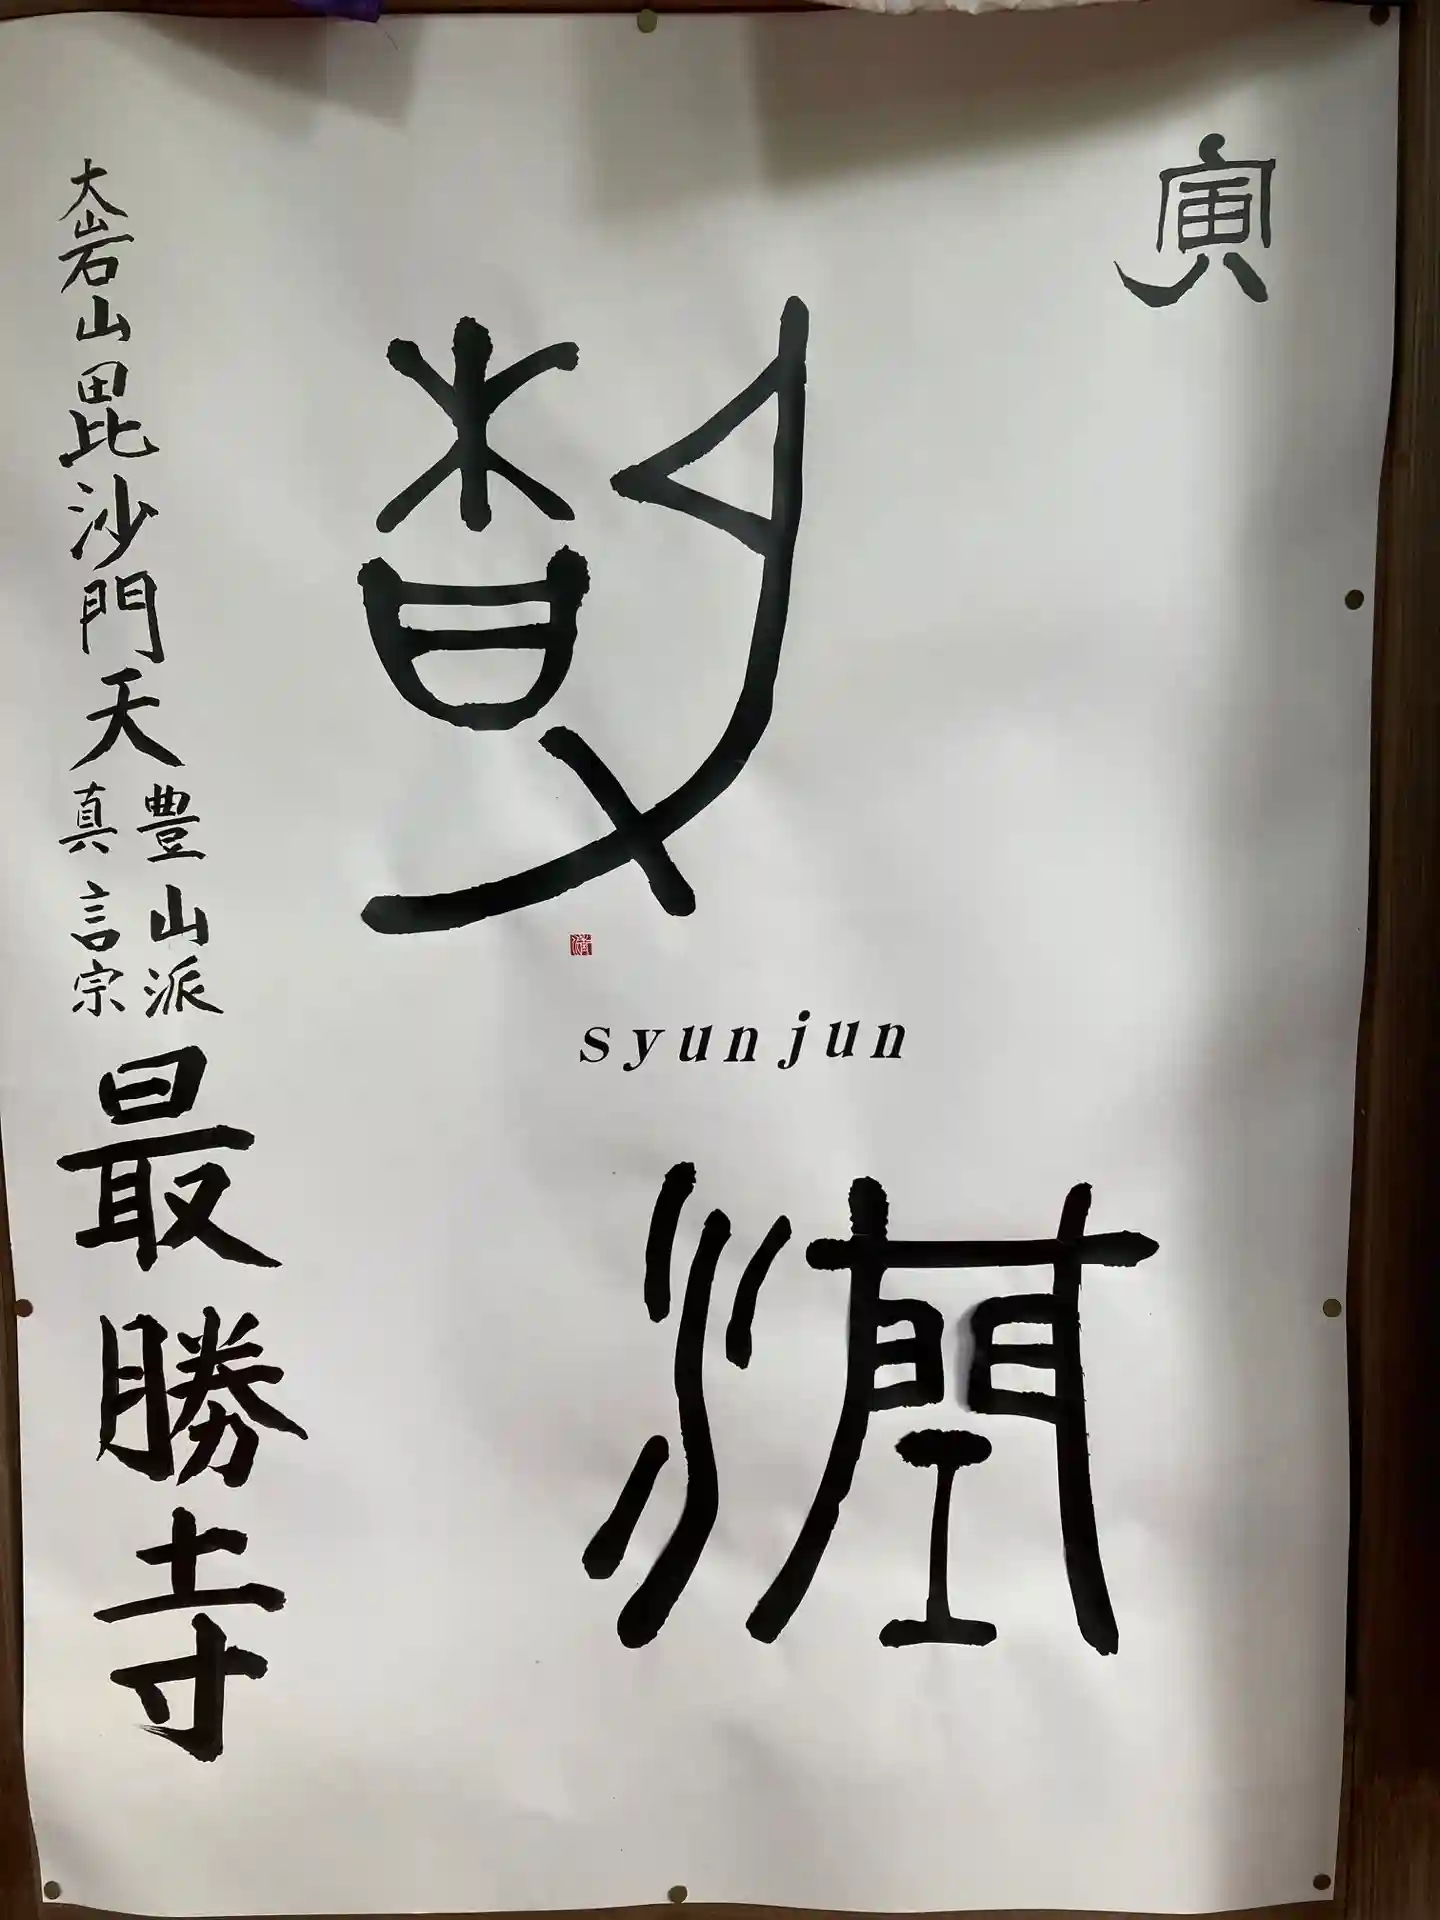 寅
syunjun
潤
大岩山毘沙門天
真言宗
豊山派
最勝寺